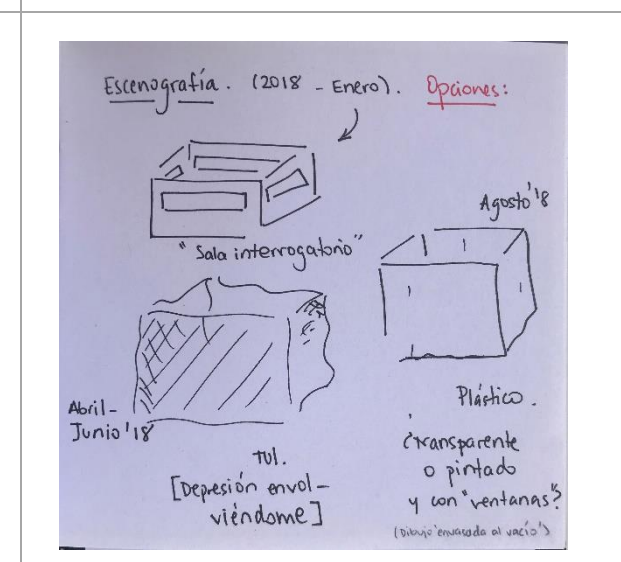 Escenografía. (2018 - Enero). Opciones:
"Sala interrogatorio"
Agosto '18
Abril-
Junio '18
Tul.
[Depresión envol-
viéndome]
Plástico.
¿transparente
o pintado
y con "ventanas"?
(Dibujo 'envasada al vacío')